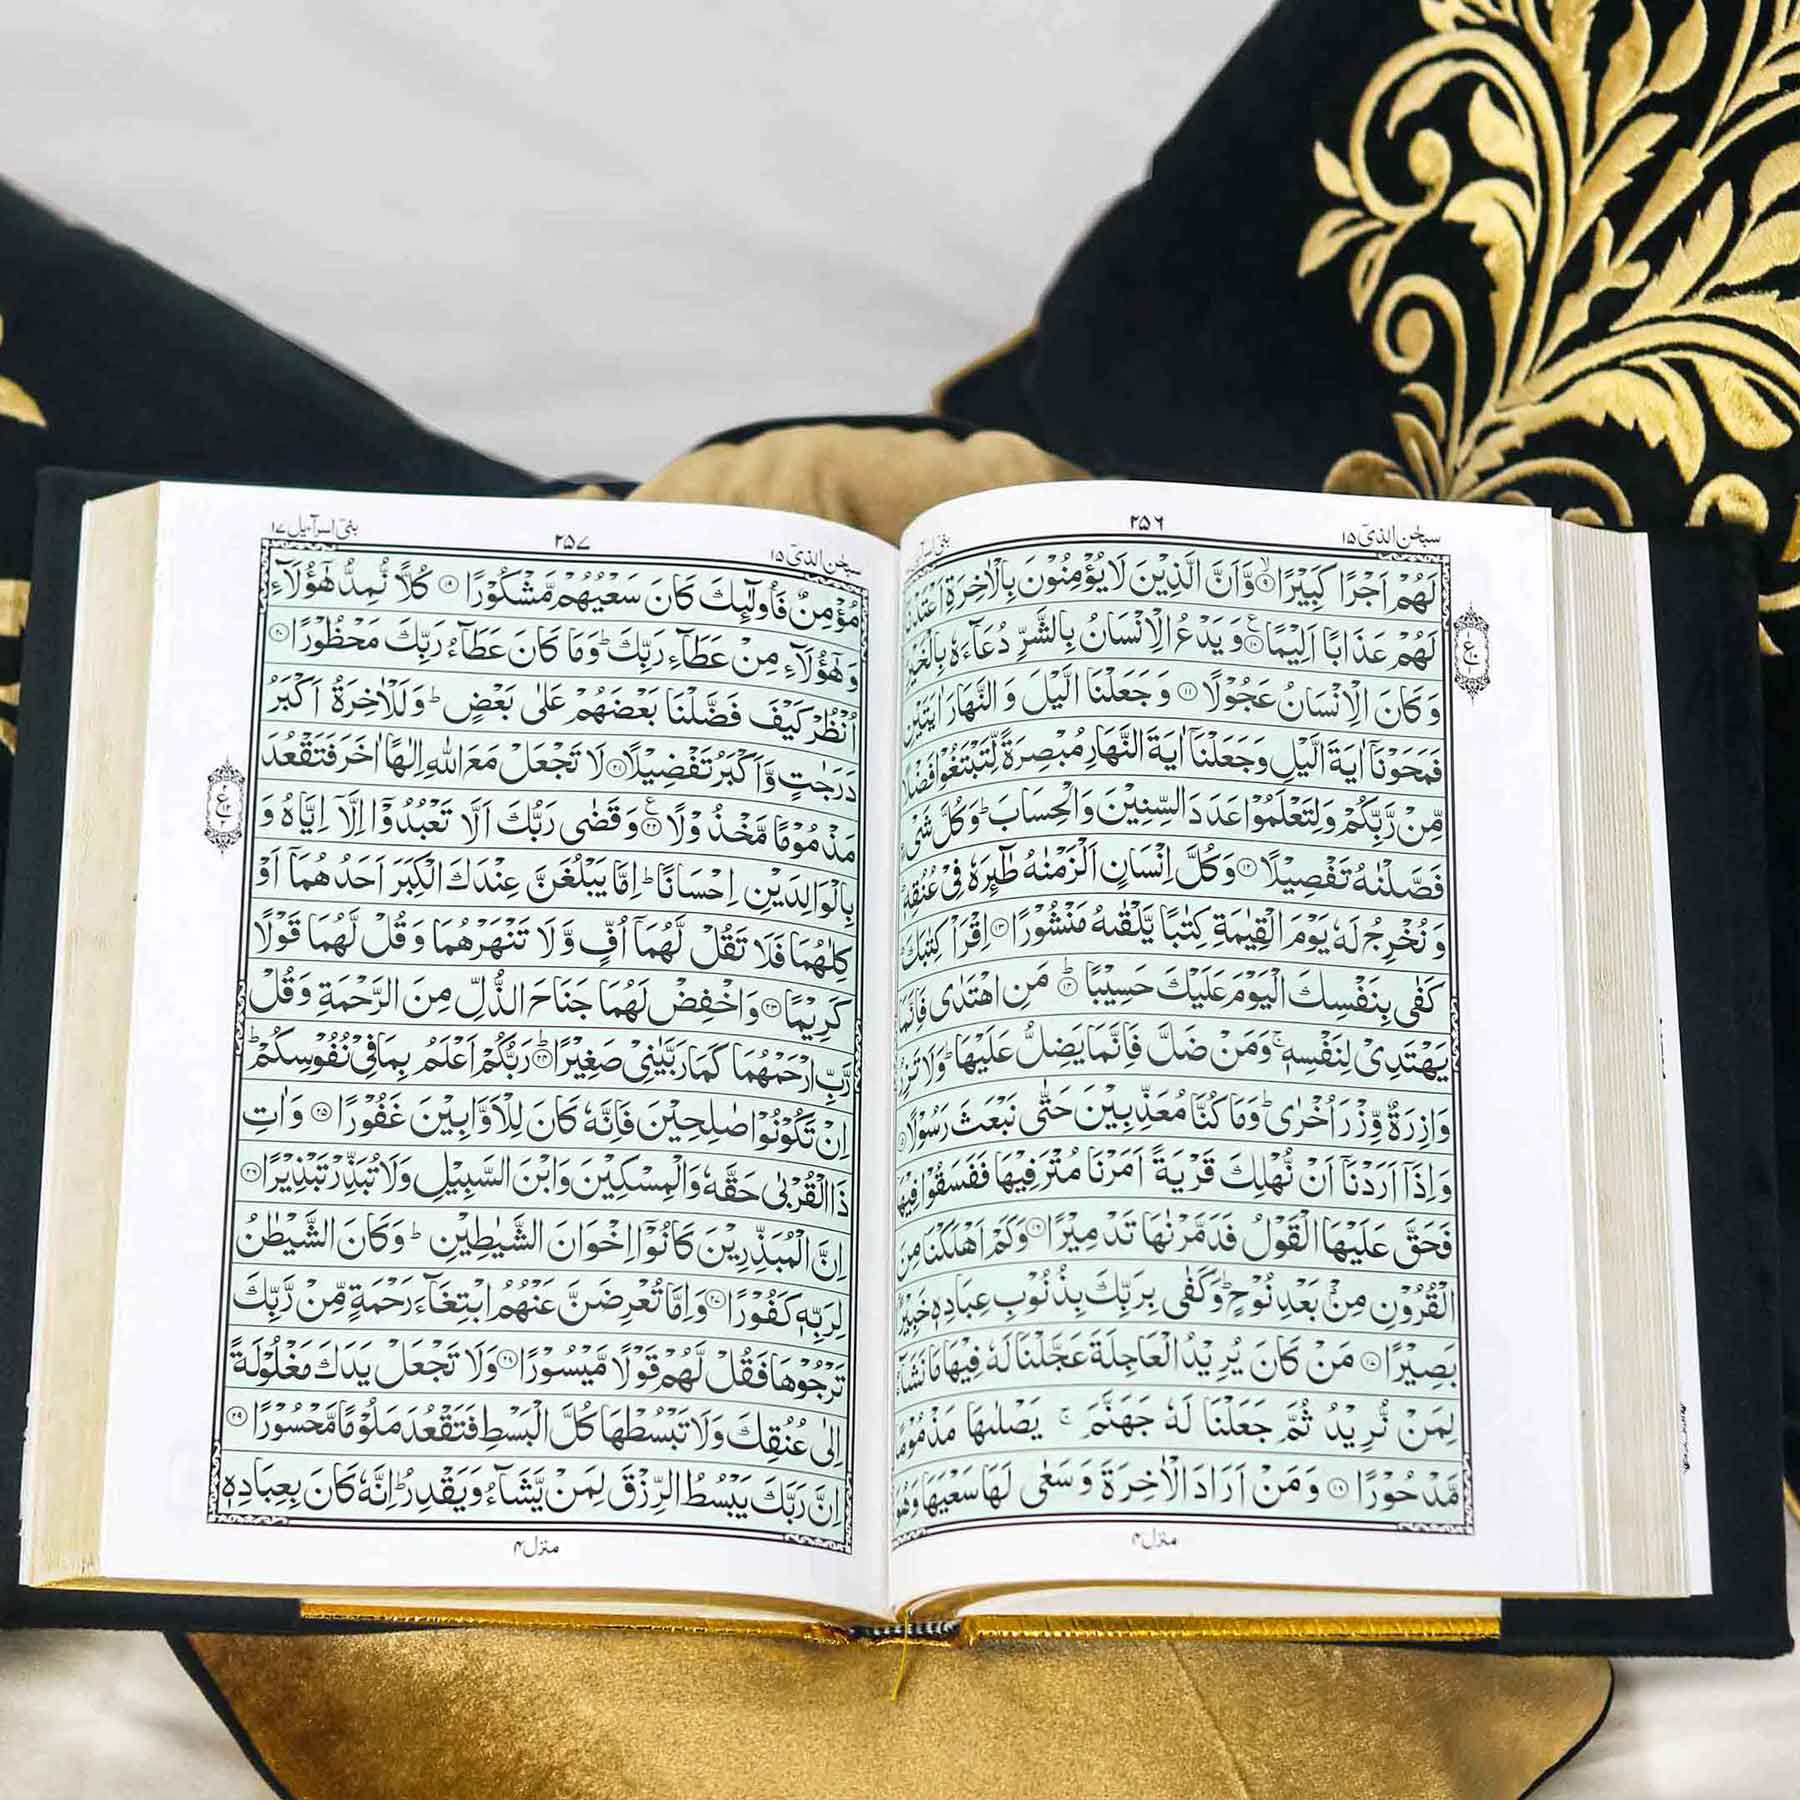 سبحٰن الذیٓ ۱۵
۲۵۶
بنیٓ اسرآ
لَهُمْ اَجْرًا كَبِيْرًا ۙ۹ وَّاَنَّ الَّذِيْنَ لَا يُؤْمِنُوْنَ بِالْاٰخِرَةِ اَعْتَدْنَا
لَهُمْ عَذَابًا اَلِيْمًا ۧ۱۰ وَ يَدْعُ الْاِنْسَانُ بِالشَّرِّ دُعَآءَهٗ بِالْخَيْرِ ؕ
وَ كَانَ الْاِنْسَانُ عَجُوْلًا ۱۱ وَ جَعَلْنَا الَّيْلَ وَ النَّهَارَ اٰيَتَيْنِ
فَمَحَوْنَاۤ اٰيَةَ الَّيْلِ وَ جَعَلْنَاۤ اٰيَةَ النَّهَارِ مُبْصِرَةً لِّتَبْتَغُوْا فَضْلًا
مِّنْ رَّبِّكُمْ وَ لِتَعْلَمُوْا عَدَدَ السِّنِيْنَ وَ الْحِسَابَ ؕ وَ كُلَّ شَیْءٍ
فَصَّلْنٰهُ تَفْصِيْلًا ۱۲ وَ كُلَّ اِنْسَانٍ اَلْزَمْنٰهُ طٰٓئِرَهٗ فِیْ عُنُقِهٖ ؕ
وَ نُخْرِجُ لَهٗ يَوْمَ الْقِيٰمَةِ كِتٰبًا يَّلْقٰىهُ مَنْشُوْرًا ۱۳ اِقْرَاْ كِتٰبَكَ ؕ
كَفٰى بِنَفْسِكَ الْيَوْمَ عَلَيْكَ حَسِيْبًا ؕ۱۴ مَنِ اهْتَدٰى فَاِنَّمَا
يَهْتَدِیْ لِنَفْسِهٖ ۚ وَ مَنْ ضَلَّ فَاِنَّمَا يَضِلُّ عَلَيْهَا ؕ وَ لَا تَزِرُ
وَازِرَةٌ وِّزْرَ اُخْرٰى ؕ وَ مَا كُنَّا مُعَذِّبِيْنَ حَتّٰى نَبْعَثَ رَسُوْلًا ۱۵
وَ اِذَاۤ اَرَدْنَاۤ اَنْ نُّهْلِكَ قَرْيَةً اَمَرْنَا مُتْرَفِيْهَا فَفَسَقُوْا فِيْهَا
فَحَقَّ عَلَيْهَا الْقَوْلُ فَدَمَّرْنٰهَا تَدْمِيْرًا ۱۶ وَ كَمْ اَهْلَكْنَا مِنَ
الْقُرُوْنِ مِنْۢ بَعْدِ نُوْحٍ ؕ وَ كَفٰى بِرَبِّكَ بِذُنُوْبِ عِبَادِهٖ خَبِيْرًۢا
بَصِيْرًا ۱۷ مَنْ كَانَ يُرِيْدُ الْعَاجِلَةَ عَجَّلْنَا لَهٗ فِيْهَا مَا نَشَآءُ
لِمَنْ نُّرِيْدُ ثُمَّ جَعَلْنَا لَهٗ جَهَنَّمَ ۚ يَصْلٰىهَا مَذْمُوْمًا
مَّدْحُوْرًا ۱۸ وَ مَنْ اَرَادَ الْاٰخِرَةَ وَ سَعٰى لَهَا سَعْيَهَا وَ هُوَ
منزل ۴
سبحٰن الذیٓ ۱۵
۲۵۷
بنیٓ اسرآءیل ۱۷
مُؤْمِنٌ فَاُولٰٓئِكَ كَانَ سَعْيُهُمْ مَّشْكُوْرًا ۱۹ كُلًّا نُّمِدُّ هٰۤؤُلَآءِ
وَ هٰۤؤُلَآءِ مِنْ عَطَآءِ رَبِّكَ ؕ وَ مَا كَانَ عَطَآءُ رَبِّكَ مَحْظُوْرًا ۲۰
اُنْظُرْ كَيْفَ فَضَّلْنَا بَعْضَهُمْ عَلٰى بَعْضٍ ؕ وَ لَلْاٰخِرَةُ اَكْبَرُ
دَرَجٰتٍ وَّ اَكْبَرُ تَفْضِيْلًا ۲۱ لَا تَجْعَلْ مَعَ اللّٰهِ اِلٰهًا اٰخَرَ فَتَقْعُدَ
مَذْمُوْمًا مَّخْذُوْلًا ۧ۲۲ وَ قَضٰى رَبُّكَ اَلَّا تَعْبُدُوْۤا اِلَّاۤ اِيَّاهُ وَ
بِالْوَالِدَيْنِ اِحْسَانًا ؕ اِمَّا يَبْلُغَنَّ عِنْدَكَ الْكِبَرَ اَحَدُهُمَاۤ اَوْ
كِلٰهُمَا فَلَا تَقُلْ لَّهُمَاۤ اُفٍّ وَّ لَا تَنْهَرْهُمَا وَ قُلْ لَّهُمَا قَوْلًا
كَرِيْمًا ۲۳ وَ اخْفِضْ لَهُمَا جَنَاحَ الذُّلِّ مِنَ الرَّحْمَةِ وَ قُلْ
رَّبِّ ارْحَمْهُمَا كَمَا رَبَّيٰنِیْ صَغِيْرًا ؕ۲۴ رَبُّكُمْ اَعْلَمُ بِمَا فِیْ نُفُوْسِكُمْ ؕ
اِنْ تَكُوْنُوْا صٰلِحِيْنَ فَاِنَّهٗ كَانَ لِلْاَوَّابِيْنَ غَفُوْرًا ۲۵ وَ اٰتِ
ذَا الْقُرْبٰى حَقَّهٗ وَ الْمِسْكِيْنَ وَ ابْنَ السَّبِيْلِ وَ لَا تُبَذِّرْ تَبْذِيْرًا ۲۶
اِنَّ الْمُبَذِّرِيْنَ كَانُوْۤا اِخْوَانَ الشَّيٰطِيْنِ ؕ وَ كَانَ الشَّيْطٰنُ
لِرَبِّهٖ كَفُوْرًا ۲۷ وَ اِمَّا تُعْرِضَنَّ عَنْهُمُ ابْتِغَآءَ رَحْمَةٍ مِّنْ رَّبِّكَ
تَرْجُوْهَا فَقُلْ لَّهُمْ قَوْلًا مَّيْسُوْرًا ۲۸ وَ لَا تَجْعَلْ يَدَكَ مَغْلُوْلَةً
اِلٰى عُنُقِكَ وَ لَا تَبْسُطْهَا كُلَّ الْبَسْطِ فَتَقْعُدَ مَلُوْمًا مَّحْسُوْرًا ۲۹
اِنَّ رَبَّكَ يَبْسُطُ الرِّزْقَ لِمَنْ يَّشَآءُ وَ يَقْدِرُ ؕ اِنَّهٗ كَانَ بِعِبَادِهٖ
منزل ۴